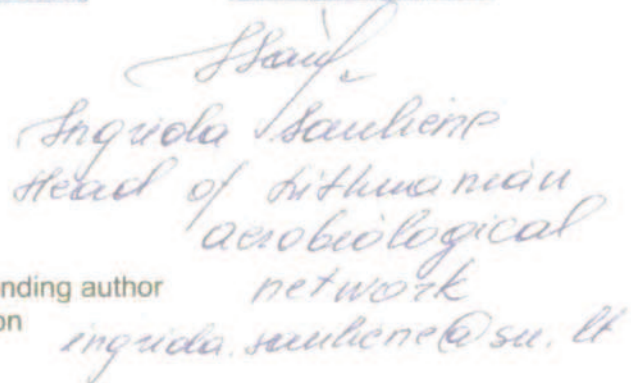 Ingrida Šaulienė
Head of Lithuanian
aerobiological
nding author network
on ingrida.sauliene@su.lt